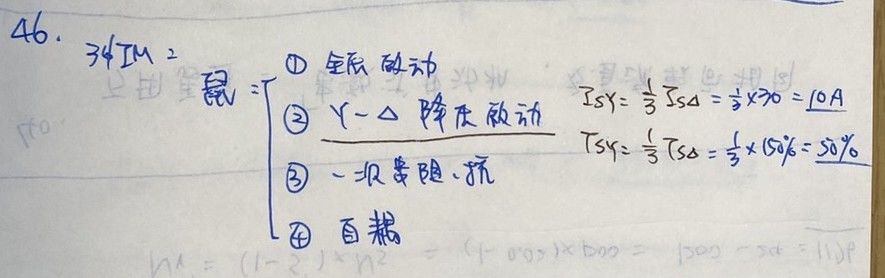 46.
3ϕIM:
鼠:
① 全压 啟动
② Y-△ 降压啟动
③ 一次串阻、抗
④ 自耦
ISY = 1/3 IS△ = 1/3 × 30 = 10A
TSY = 1/3 TS△ = 1/3 × 150% = 50%